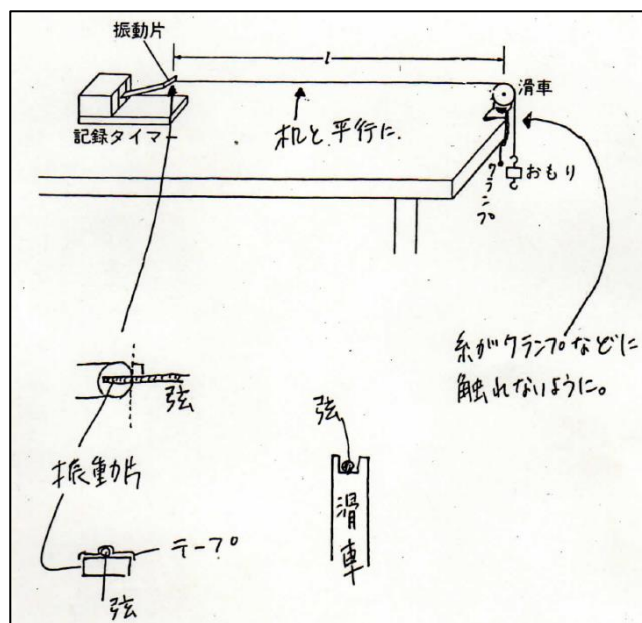 振動片
l
滑車
記録タイマー
机と平行に
クランプ
おもり
糸がクランプなどに
触れないように。
弦
振動片
弦
滑車
テープ
弦